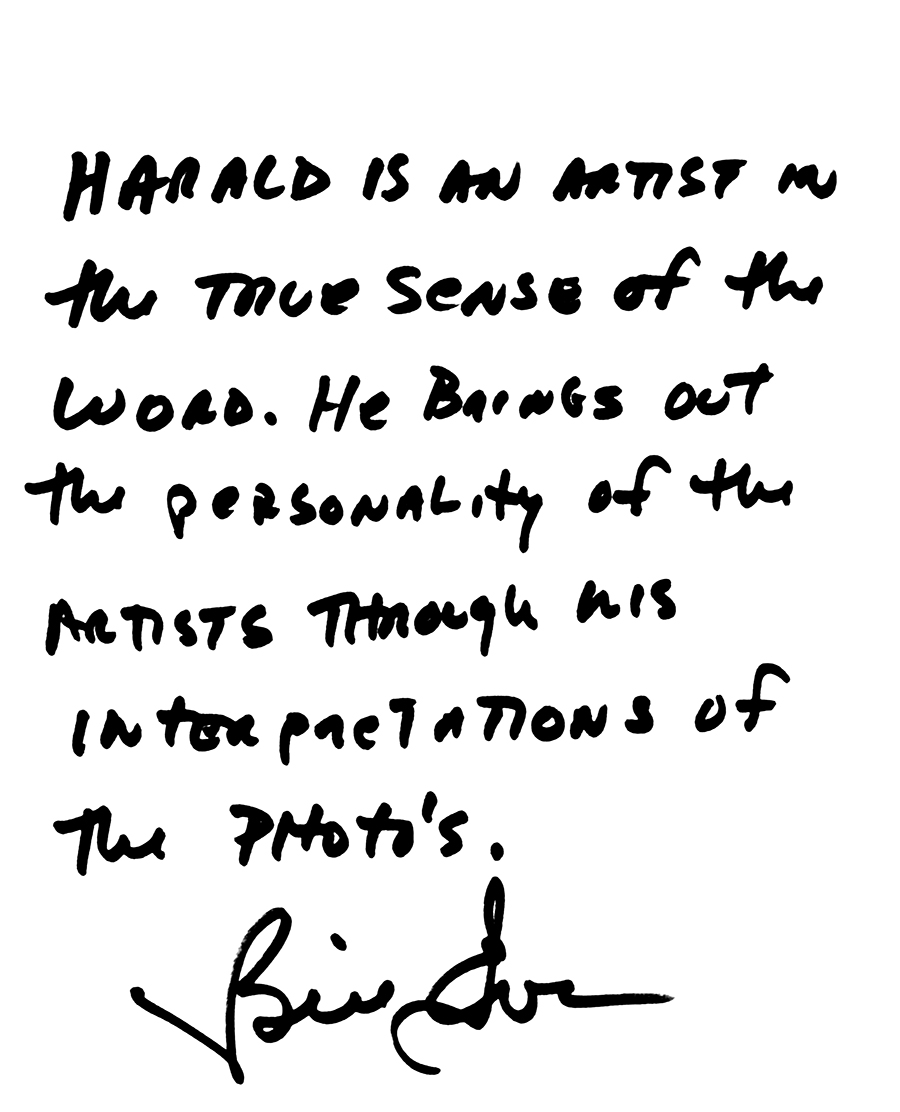 HARALD IS AN ARTIST IN
the TRUE SENSE of the
WORD. He BRINGS OUT
the PERSONALity of the
ARTISTS THROUgh his
INterpreTATIONS of
the PHoto's.
Bill